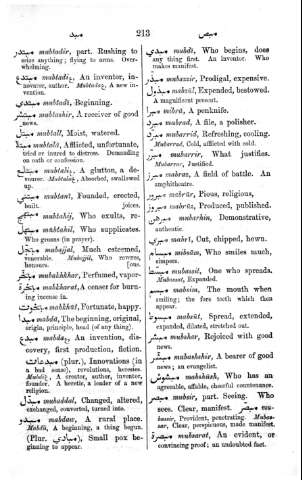 مبد
213
مبص
مبتدر mubtadir, part. Rushing to
seize anything; flying to arms. Over-
whelming.
مبتدع mubtadiz, An inventor, in-
novator, author. Mubtadaz, A new in-
vention.
mubtadi, Beginning.
mubtashir, A receiver of good
news.
مبتل mubtall, Moist, watered.
mubtalá, Afflicted, unfortunate,
tried or inured to distress. Demanding
an oath or confession.
مبتلع mubtaliz, A glutton, a de-
vourer. Mubtalaz, Absorbed, swallowed
up.
mubtani, Founded, erected,
built. joices.
مبتهج mubtahij, Who exults, re-
مبتهل mubtahil, Who supplicates.
Who groans (in prayer).
مبجل mubajjal, Much esteemed,
venerable. Mubajjil, Who reveres,
honours. [ous.
مبخر mubakhkhar, Perfumed, vapor-
مبخرة mubkharat, A censer for burn-
ing incense in.
مبخوت mabkhūt, Fortunate, happy.
مبدا mabdá, The beginning, original,
origin, principle, head (of any thing).
مبدع mubdaz, An invention, dis-
covery, first production, fiction.
(plur.), Innovations (in
a bad sense), revolutions, heresies.
Mubdiz, A creator, author, inventor,
founder. A heretic, a leader of a new
religion.
مبدل mubaddal, Changed, altered,
exchanged, converted, turned into.
mabdaw, A rural place.
Mabdú, A beginning, a thing begun.
(Plur. مبادي), Small pox be-
ginning to appear.
مبدي mubdī, Who begins, does
any thing first. An inventor. Who
makes manifest.
مبذر mubazzir, Prodigal, expensive.
مبذول mabzūl, Expended, bestowed.
A magnificent present.
mibrá, A penknife.
مبرد mabrad, A file, a polisher.
مبرد mubarrid, Refreshing, cooling.
Mubarrad, Cold, afflicted with cold.
مبرر mubarrir, What justifies.
Mubarrar, Justified.
مبرز mabraz, A field of battle. An
amphitheatre.
مبرور mabrūr, Pious, religious,
مبروز mabrūz, Produced, published.
مبرهن mubarhin, Demonstrative,
authentic.
mabrī, Cut, chipped, hewn.
مبسام mibsām, Who smiles much,
simpers.
مبسط mubassit, One who spreads.
Mubassat, Expanded.
مبسم mabsim, The mouth when
smiling; the fore teeth which then
appear.
مبسوط mabsūt, Spread, extended,
expanded, dilated, stretched out.
مبشر mubshar, Rejoiced with good
news.
مبشر mubashshir, A bearer of good
news; an evangelist.
مبشوش mabshūsh, Who has an
agreeable, affable, cheerful countenance.
مبصر mubsir, part. Seeing. Who
sees. Clear, manifest. مبصر mu-
bassir, Provident, penetrating. Mubas-
sar, Clear, perspicuous, made manifest.
مبصرة mubsarat, An evident, or
convincing proof; an undoubted fact.